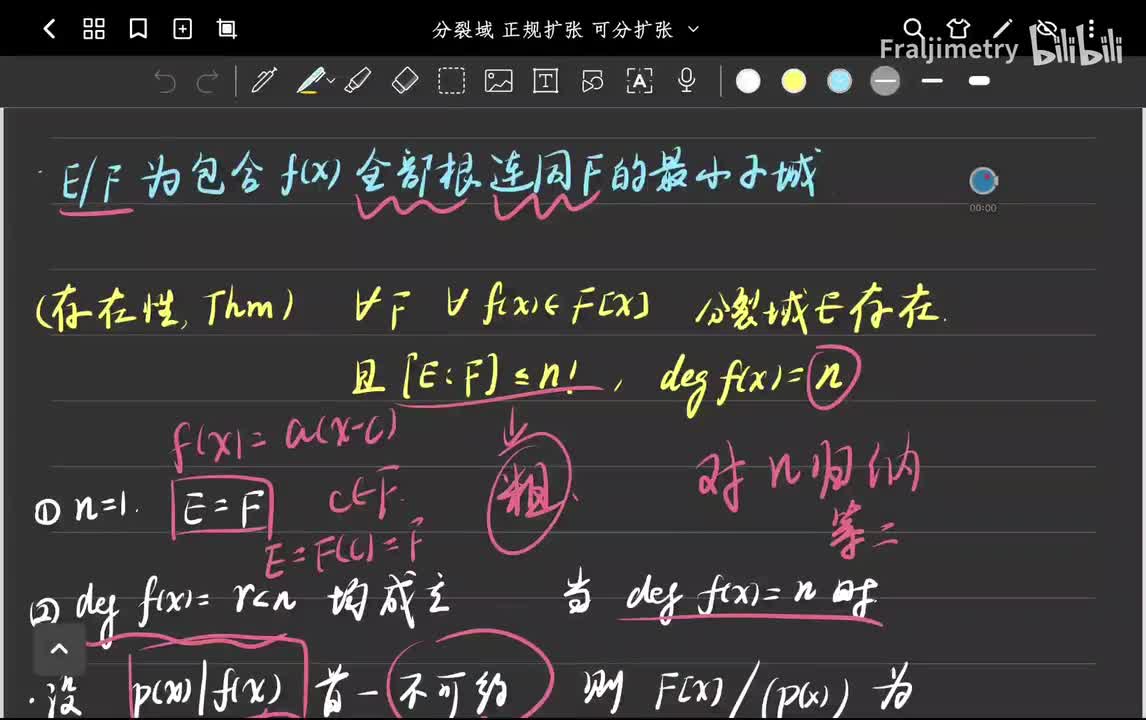 分裂域 正规扩张 可分扩张
Fraljimetry bilibili
E/F 为包含 f(x) 全部根连同F的最小子域
00:00
(存在性, Thm) ∀F ∀f(x)∈F[x] 分裂域E存在.
且 [E:F]≤n!, deg f(x)=n
f(x)=a(x-c)
粗
对n归纳
① n=1. E=F c∈F.
E=F(c)=F
第二
② deg f(x)=r<n 均成立 当 deg f(x)=n 时
·设 p(x)|f(x) 首一不可约 则 F[x]/(p(x)) 为